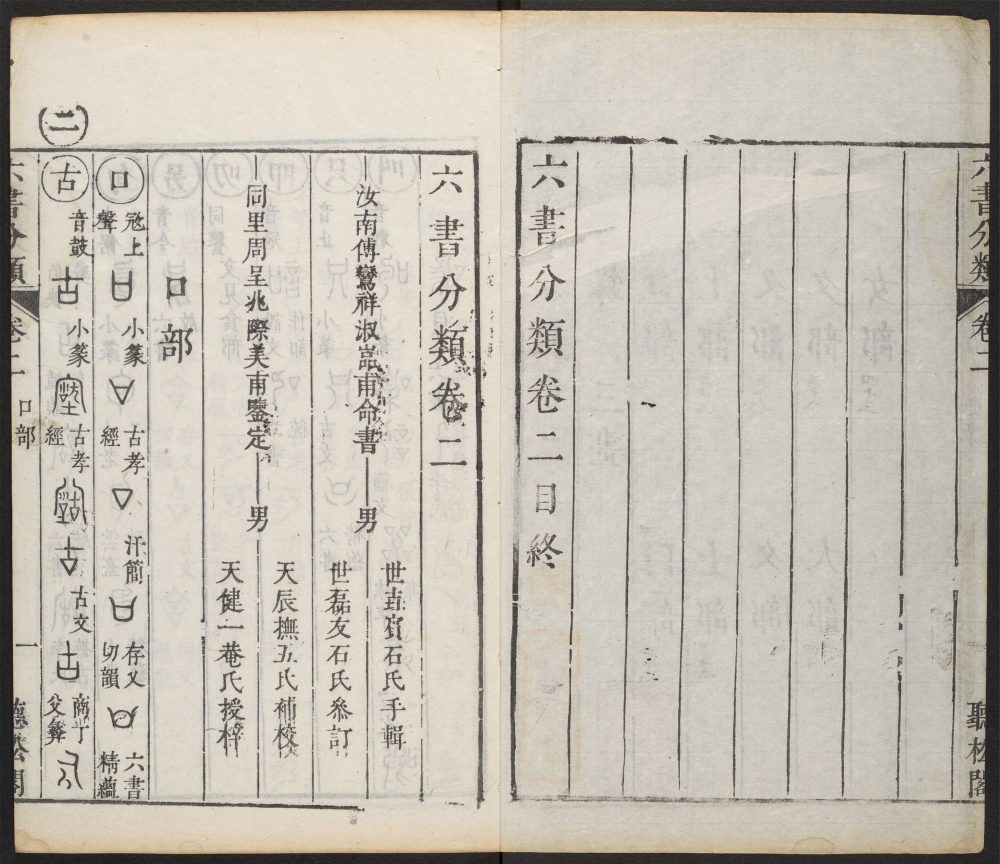 六書分類
卷二
聽松閣
六書分類卷二目終
六書分類卷二
汝南傅鸞祥淑嵓甫命書 男
世垚賓石氏手輯
世磊友石氏叅訂
同里周呈兆際美甫鑒定 男
天辰撫五氏補校
天健一菴氏授梓
口部
口 上聲 小篆 古孝經 汗簡 存乂切韻 六書精蘊
古 音鼓 古 小篆 古孝經 古文 商 父彝
(二)
六書分類
卷二
口部
一
聽松閣